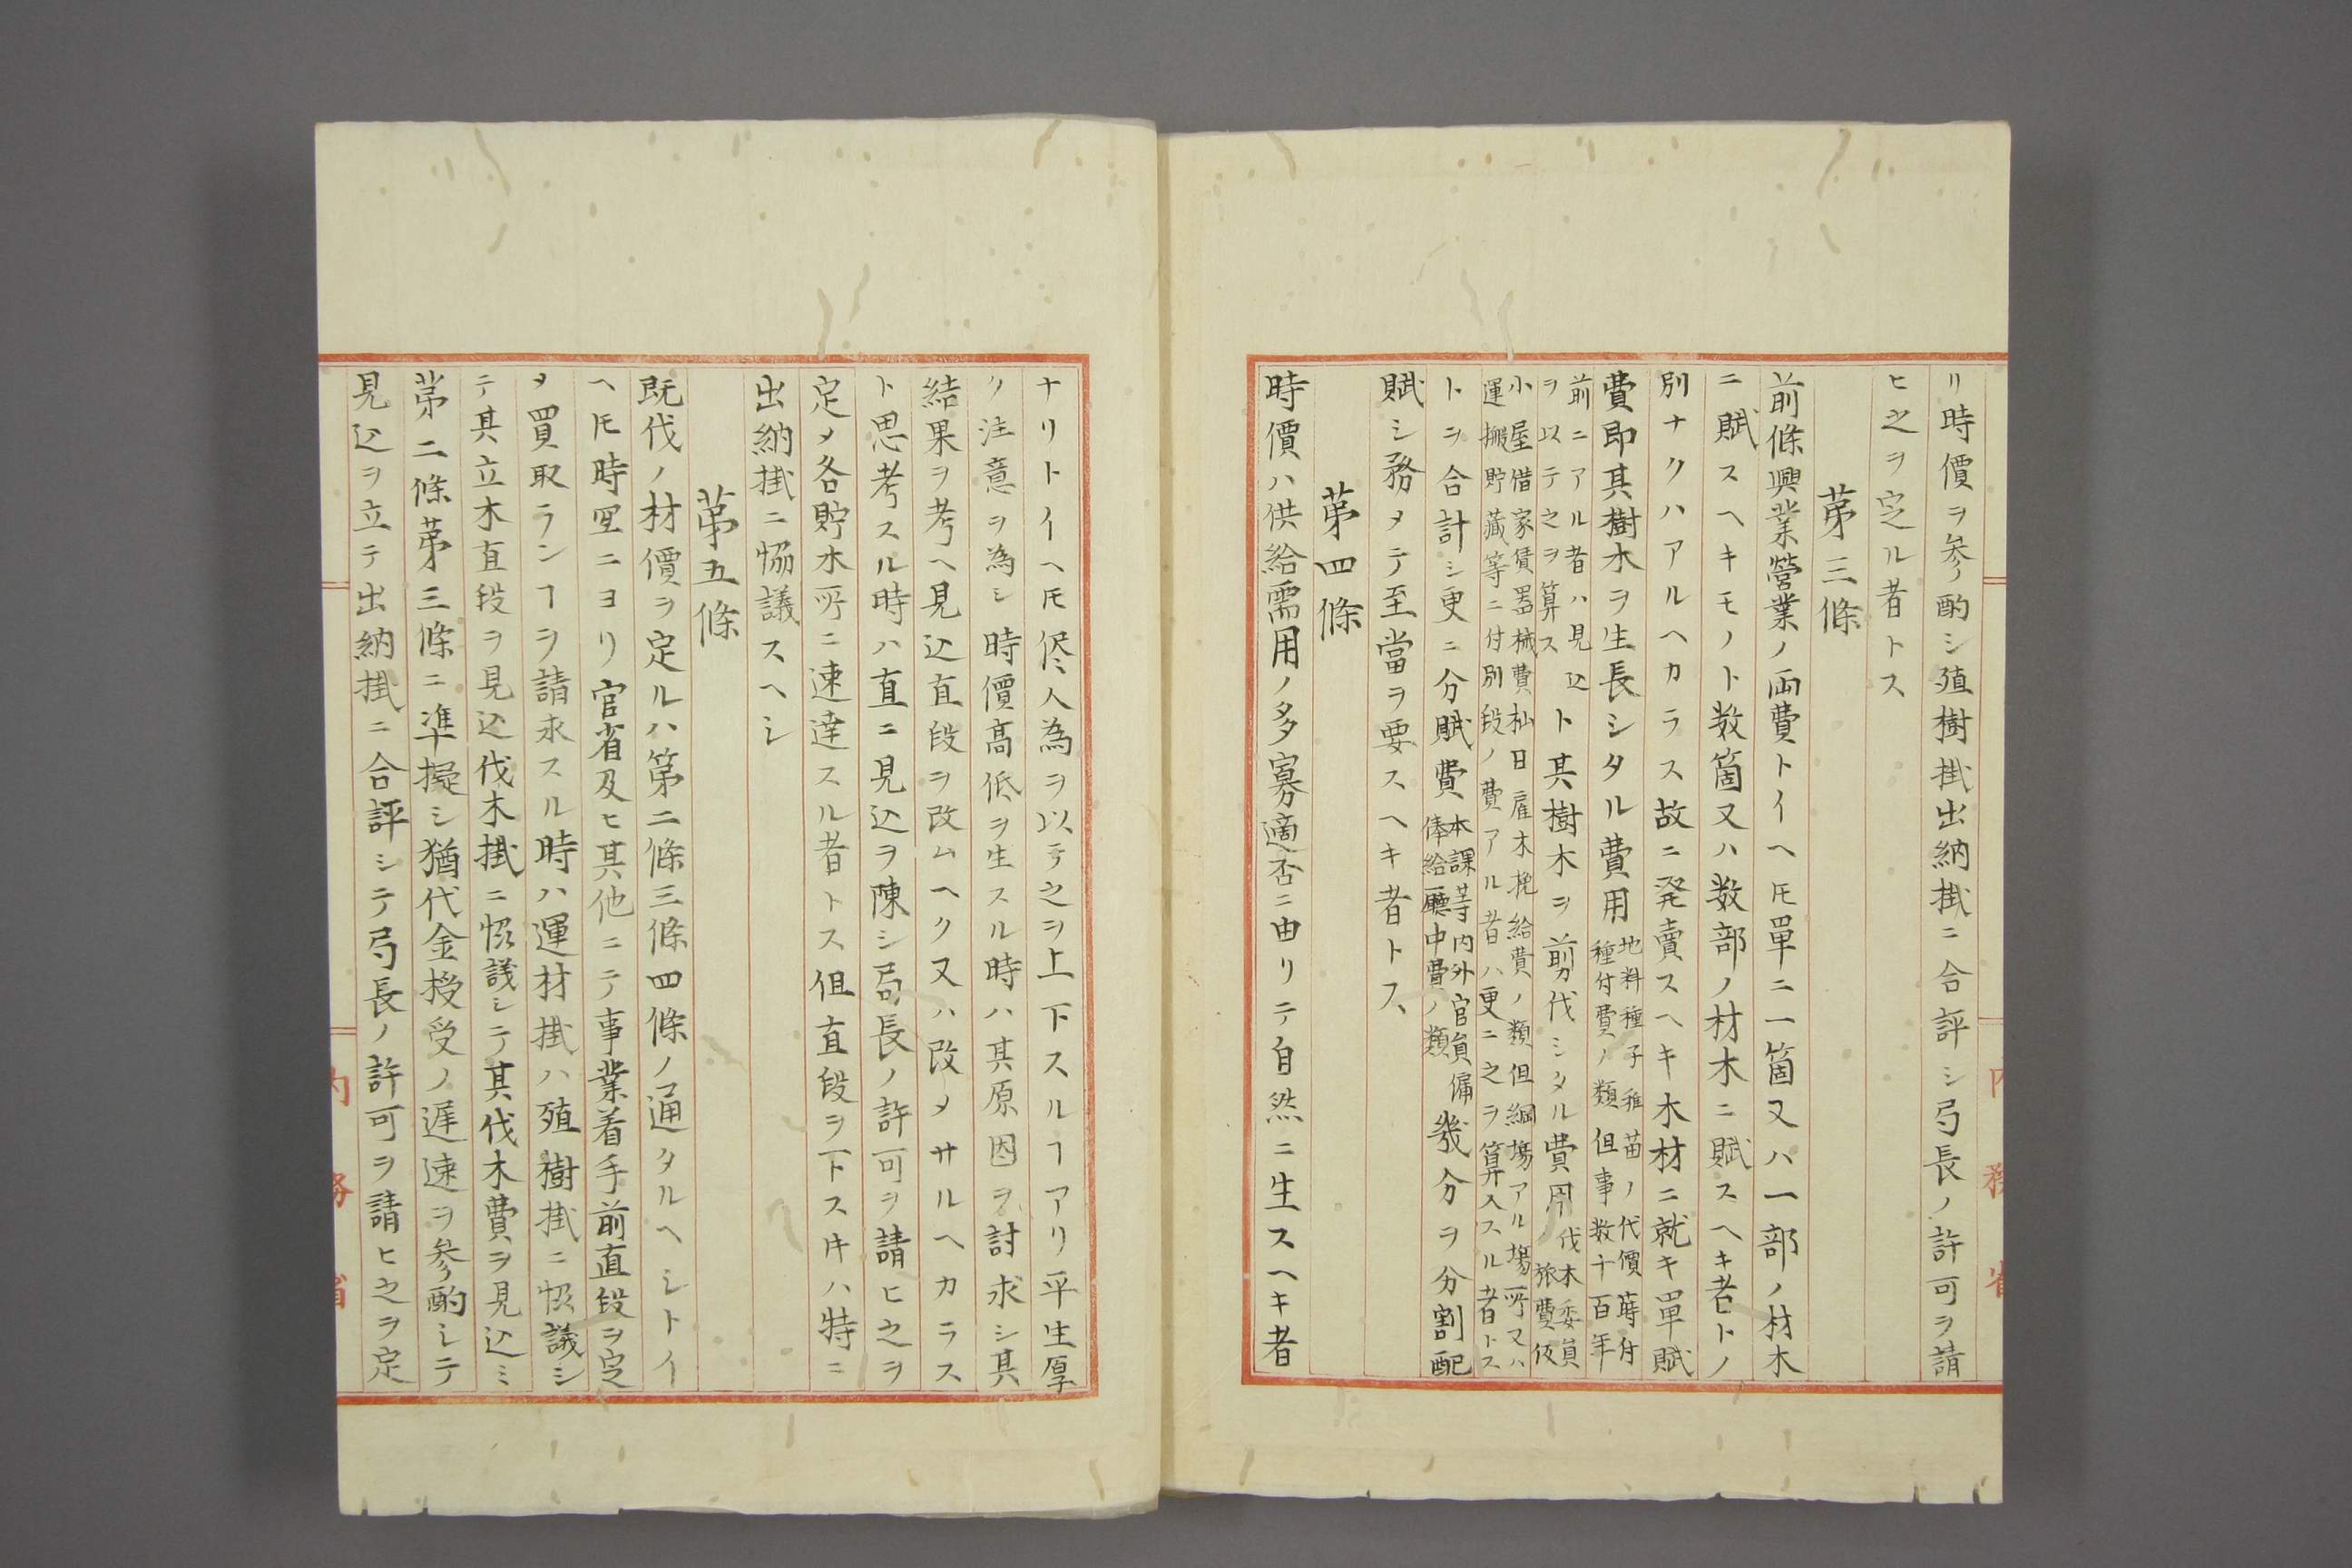 リ時價ヲ参酌シ殖樹掛出納掛ニ合評シ局長ノ許可ヲ請
ヒ之ヲ定ル者トス
第三條
前條興業營業ノ両費トイヘ𪜈單ニ一箇又ハ一部ノ材木
ニ賦スヘキモノト数箇又ハ数部ノ材木ニ賦スヘキ者トノ
別ナクハアルヘカラス故ニ発賣スヘキ木材ニ就キ單賦
費即其樹木ヲ生長シタル費用
地料種子稚苗ノ代價蒔付
種付費ノ類但事数十百年
前ニアル者ハ見込
ヲ以テ之ヲ算ス
ト其樹木ヲ剪伐シタル費用
伐木委員
旅費仮
小屋借家賃器械費杣日雇木挽給費ノ類但網場アル場所又ハ
運搬貯蔵等ニ付別段ノ費アル者ハ更ニ之ヲ算入スル者トス
トヲ合計シ更ニ分賦費
本課等内外官員傭
俸給廳中費ノ類
幾分ヲ分割配
賦シ務メテ至當ヲ要スヘキ者トス
第四條
時價ハ供給需用ノ多寡適否ニ由リテ自然ニ生スヘキ者
ナリトイヘ𪜈人為ヲ以テ之ヲ上下スルヿアリ平生厚
ク注意ヲ為シ時價髙低ヲ生スル時ハ其原因ヲ討求シ其
結果ヲ考ヘ見込直段ヲ改ムヘク又ハ改メサルヘカラス
ト思考スル時ハ直ニ見込ヲ陳シ局長ノ許可ヲ請ヒ之ヲ
定メ各貯木所ニ速達スル者トス但直段ヲ下スキハ特ニ
出納掛ニ協議スヘシ
第五條
既伐ノ材價ヲ定ルハ第二條三條四條ノ通タルヘシトイ
ヘ𪜈時宜ニヨリ官省及ヒ其他ニテ事業着手前直段ヲ定
メ買取ランヿヲ請求スル時ハ運材掛ハ殖樹掛ニ協議シ
テ其立木直段ヲ見込伐木掛ニ協議シテ其伐木費ヲ見込ミ
第二條第三條ニ準擬シ猶代金授受ノ遅速ヲ参酌シテ
見込ヲ立テ出納掛ニ合評シテ局長ノ許可ヲ請ヒ之ヲ定
内務省